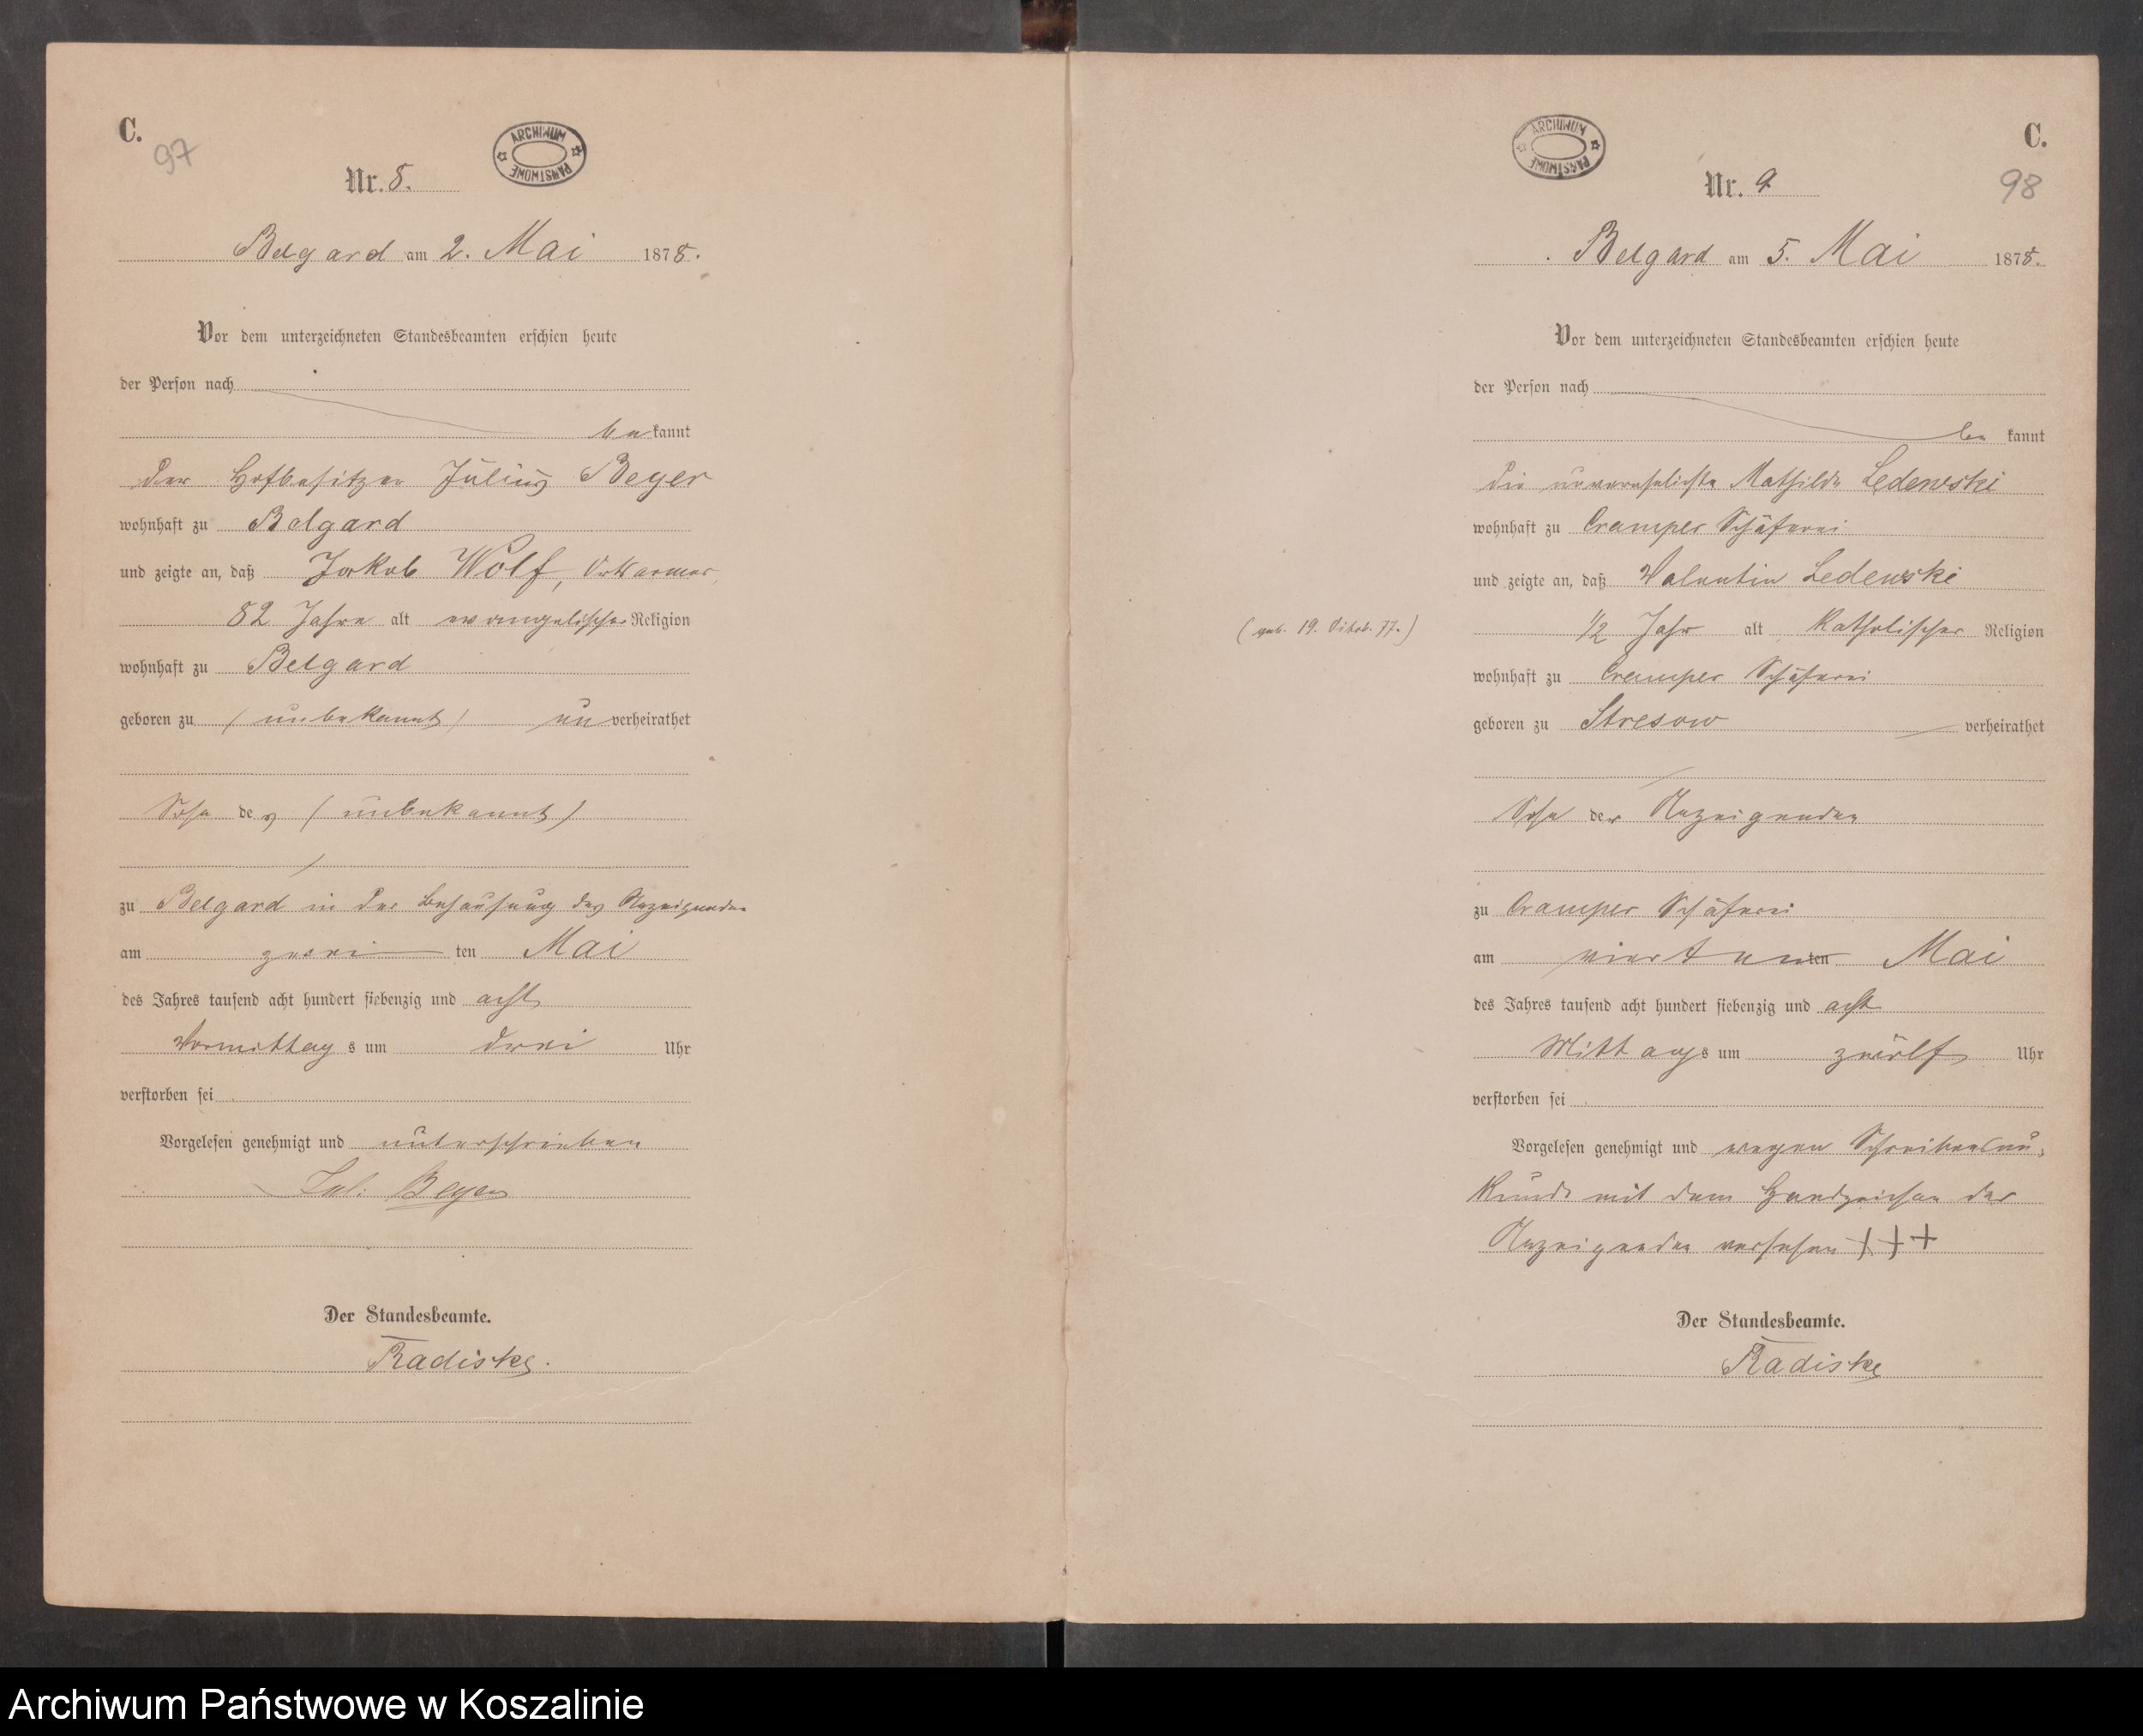 C.
97
ARCHIWUM PAŃSTWOWE
Nr. 8.
Belgard am 2. Mai 1878.
Vor dem unterzeichneten Standesbeamten erschien heute
der Person nach
be kannt
der Hofbesitzer Julius Beyer
wohnhaft zu Belgard
und zeigte an, daß Jakob Wolf, Ortsarmer,
82 Jahre alt evangelischer Religion
wohnhaft zu Belgard
geboren zu (unbekannt) un verheirathet
Sohn des (unbekannt)
zu Belgard in der Behausung des Anzeigenden
am zwei ten Mai
des Jahres tausend acht hundert siebenzig und acht
Vormittag s um drei Uhr
verstorben sei
Vorgelesen genehmigt und unterschrieben
Jul: Beyer
Der Standesbeamte.
Radiske.
C.
98
ARCHIWUM PAŃSTWOWE
Nr. 9
Belgard am 5. Mai 1878.
Vor dem unterzeichneten Standesbeamten erschien heute
der Person nach
be kannt
die unverehelichte Mathilde Ledewski
wohnhaft zu Cramper Schäferei
und zeigte an, daß Valentin Ledewski
(geb. 19. Oktob. 77.)
1/2 Jahr alt Katholischer Religion
wohnhaft zu Cramper Schäferei
geboren zu Stresow verheirathet
Sohn der Anzeigenden
zu Cramper Schäferei
am vierten ten Mai
des Jahres tausend acht hundert siebenzig und acht
Mittag s um zwölf Uhr
verstorben sei
Vorgelesen genehmigt und wegen Schreibensun-
kunde mit dem Handzeichen der
Anzeigenden versehen +++
Der Standesbeamte.
Radiske
Archiwum Państwowe w Koszalinie